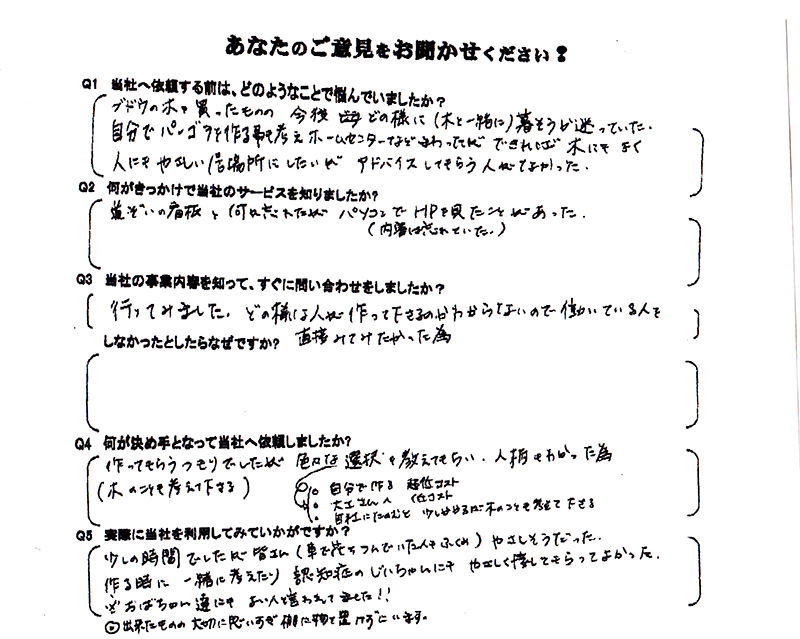 あなたのご意見をお聞かせください！
Q1 当社へ依頼する前は、どのようなことで悩んでいましたか？
ブドウの木を買ったものの 今後 どの様に(木と一緒に)暮そうか迷っていた.
自分でパーゴラを作る事も考えホームセンターなどまわったが できれば 木にもよく
人にもやさしい居場所にしたいが アドバイスしてもらう人がいてよかった.
Q2 何がきっかけで当社のサービスを知りましたか？
道ぞいの看板と 何か忘れたが パソコンでHPを見たことがあった.
(内容は忘れていた.)
Q3 当社の事業内容を知って、すぐに問い合わせをしましたか？
行ってみました. どの様な人が作って下さるのかわからないので 働いている人を
しなかったとしたらなぜですか？ 直接みてみたかった為
Q4 何が決め手となって当社へ依頼しましたか？
作ってもらうつもりでしたが 色々な選択を教えてもらい. 人柄もわかった為
(木のことも考えて下さる)
自分で作る 超低コスト
大工さん 低コスト
自社にたのむと 少し かかるが木のことも考えて下さる
Q5 実際に当社を利用してみていかがですか？
少しの時間でしたが 皆さん(車で をつんでいた人もふくめ) やさしそうだった.
作る時に 一緒に考えたり 認知症のじいちゃんにも やさしく接してもらってよかった.
おばちゃん達にも よい人と言われてました!!
出来たものの 大切に思いすぎ 棚に物を置けずにいます。